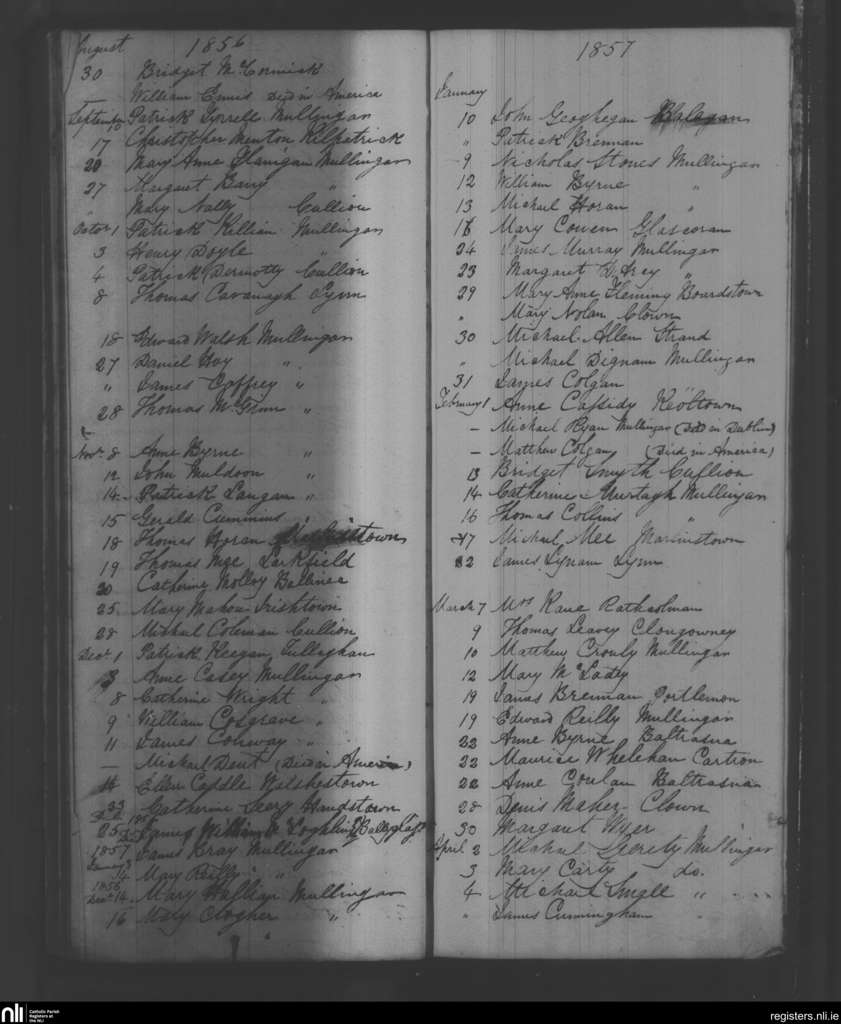 August 1856
30 Bridget McCormick
William Ennis Died in America
September 10 Patrick Tyrrell Mullingar
17 Christopher Menton Kilpatrick
20 Mary Anne Flanigan Mullingar
27 Margaret Barry "
" Mary Nally Cullion
Octor 1 Patrick Killian Mullingar
3 Henry Doyle "
4 Patrick Dermotty Cullion
8 Thomas Cavanagh Lynn
18 Edward Walsh Mullingar
27 Daniel "
" James Caffrey "
28 Thomas McGlinn "
Novr 8 Anne Byrne "
12 John Muldoon "
14 Patrick Langan "
15 Gerald Cummins "
18 Thomas Horan
19 Thomas Mee Larkfield
20 Catherine Molloy Ballinea
25 Mary Mahon Irishtown
28 Michael Coleman Cullion
Decr 1 Patrick Keegan Tullaghan
3 Anne Casey Mullingar
8 Catherine Wright "
9 William Cosgrave "
11 James Conway "
— Michael Dent (Died in America)
Ellen Caddle Walshestown
23 Catherine Leery Handstown
25
1857 James Bray Mullingar
January 14 Mary Reilly "
1856 Decr 14 Mary Mullingar
16 Mary Clogher "
1857
January
10 John Geoghegan
" Patrick Brennan
9 Nicholas Stones Mullingar
12 William Byrne "
13 Michael Horan "
16 Mary Cowen Glascoran
24 James Murray Mullingar
23 Margaret "
29 Mary Anne Fleming Boardstown
" Mary Nolan Clown
30 Michael Allen Strand
" Michael Dignam Mullingar
31 James Colgan
February 1 Anne Cassidy Keoltown
— Michael Ryan Mullingar (Died in Dublin)
— Matthew Colgan (Died in America)
13 Bridget Smyth Cullion
14 Catherine Murtagh Mullingar
16 Thomas Collins "
17 Michael Mee Marlinstown
22 James Lynam Lynn
March 7 Mrs Kane Rathcolman
9 Thomas Leavey Clongowney
10 Matthew Crouly Mullingar
12 Mary
19 James Brennan Portlemon
19 Edward Reilly Mullingar
22 Anne Byrne Baltrasna
22 Maurice Whelehan Cartron
22 Anne Baltrasna
28 Denis Maher Clown
30 Margaret Wyer
April 2 Michael Mullingar
3 Mary Carty do.
4 Michael "
" James Cunningham
nli Catholic Parish Registers at the NLI
registers.nli.ie